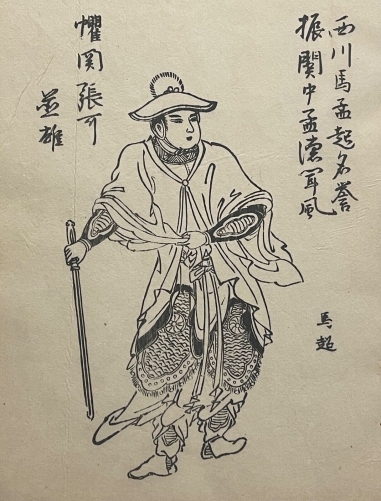 西川馬孟起名誉
振関中孟德闻風
懼関張可
並雄
馬超